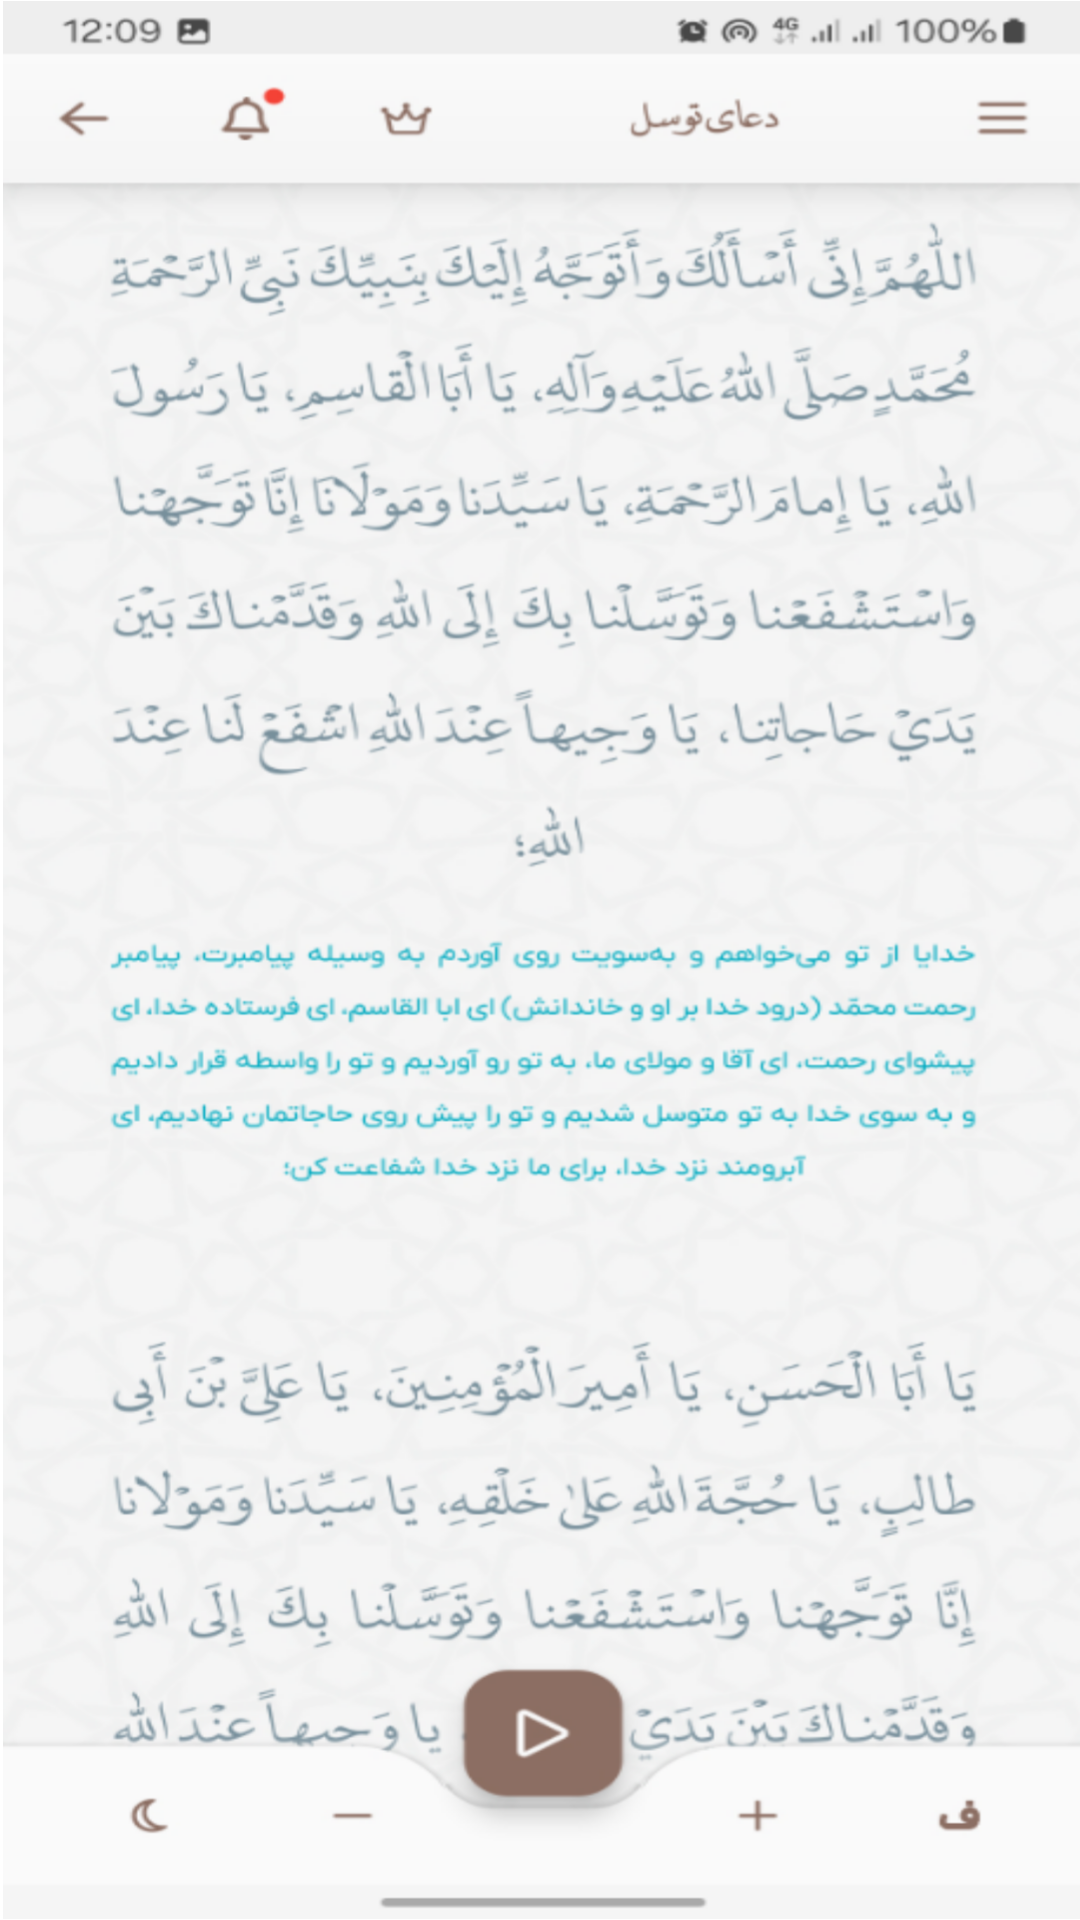 12:09 4G 100%
دعای توسل
اللّٰهُمَّ إِنِّى أَسْأَلُكَ وَأَتَوَجَّهُ إِلَيْكَ بِنَبِيِّكَ نَبِىِّ الرَّحْمَةِ
مُحَمَّدٍ صَلَّى اللّٰهُ عَلَيْهِ وَآلِهِ، يَا أَبَا الْقاسِمِ، يَا رَسُولَ
اللّٰهِ، يَا إِمامَ الرَّحْمَةِ، يَا سَيِّدَنا وَمَوْلَانَا إِنَّا تَوَجَّهْنا
وَاسْتَشْفَعْنا وَتَوَسَّلْنا بِكَ إِلَى اللّٰهِ وَقَدَّمْناكَ بَيْنَ
يَدَيْ حَاجاتِنا، يَا وَجِيهاً عِنْدَ اللّٰهِ اشْفَعْ لَنا عِنْدَ
اللّٰهِ؛
خدایا از تو می‌خواهم و به‌سویت روی آوردم به وسیله پیامبرت، پیامبر
رحمت محمّد (درود خدا بر او و خاندانش) ای ابا القاسم، ای فرستاده خدا، ای
پیشوای رحمت، ای آقا و مولای ما، به تو رو آوردیم و تو را واسطه قرار دادیم
و به سوی خدا به تو متوسل شدیم و تو را پیش روی حاجاتمان نهادیم، ای
آبرومند نزد خدا، برای ما نزد خدا شفاعت کن؛
يَا أَبَا الْحَسَنِ، يَا أَمِيرَ الْمُؤْمِنِينَ، يَا عَلِىَّ بْنَ أَبِى
طالِبٍ، يَا حُجَّةَ اللّٰهِ عَلىٰ خَلْقِهِ، يَا سَيِّدَنا وَمَوْلانا
إِنَّا تَوَجَّهْنا وَاسْتَشْفَعْنا وَتَوَسَّلْنا بِكَ إِلَى اللّٰهِ
وَقَدَّمْناكَ بَيْنَ يَدَيْ يا وَجيهاً عنْدَ اللّٰه
ف